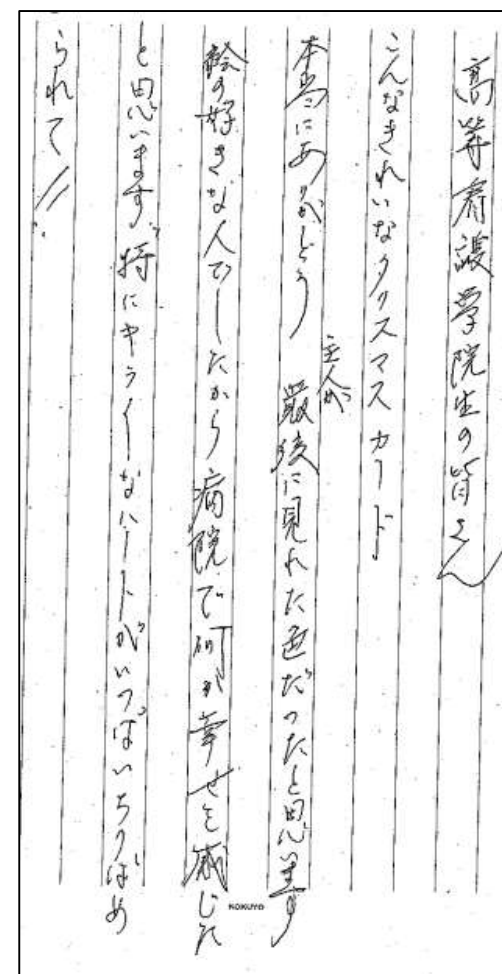 高等看護学院生の皆さん
こんなきれいなクリスマスカード
本当にありがとう 主人が 最後に見れた色だったと思います
絵の好きな人でしたから病院で何か幸せを感じた
と思います。特にキラーなハートがいっぱいちりばめ
られて!!
KOKUYO